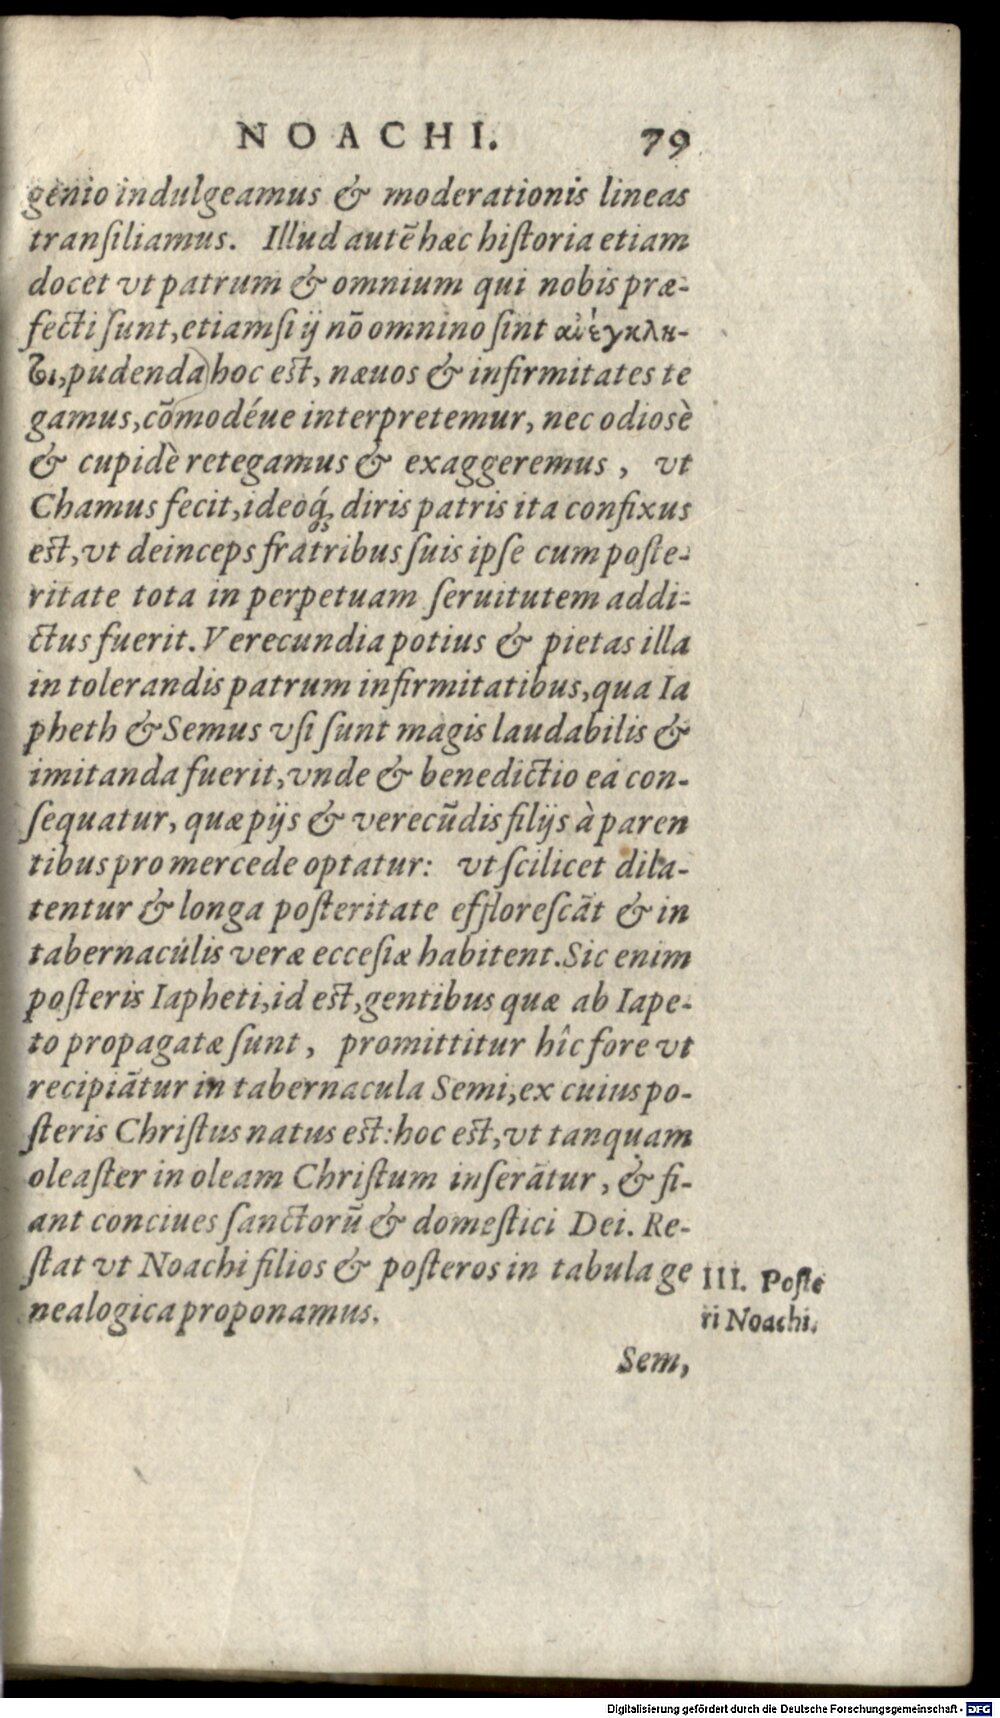 NOACHI. 79
genio indulgeamus & moderationis lineas
tranſiliamus. Illud autē hæc hiſtoria etiam
docet vt patrum & omnium qui nobis præ-
fecti ſunt, etiamſi ij nō omnino ſint ἀνέγκλη-
τοι, pudenda hoc eſt, næuos & infirmitates te
gamus, cōmodéue interpretemur, nec odiosè
& cupidè retegamus & exaggeremus, vt
Chamus fecit, ideoq́; diris patris ita confixus
eſt, vt deinceps fratribus ſuis ipſe cum poſte-
ritate tota in perpetuam ſeruitutem addi-
ctus fuerit. Verecundia potius & pietas illa
in tolerandis patrum infirmitatibus, qua Ia
pheth & Semus vſi ſunt magis laudabilis &
imitanda fuerit, vnde & benedictio ea con-
ſequatur, quæ pijs & verecūdis filijs à paren
tibus pro mercede optatur: vt ſcilicet dila-
tentur & longa poſteritate effloreſcāt & in
tabernaculis veræ ecceſiæ habitent. Sic enim
poſteris Iapheti, id eſt, gentibus quæ ab Iape-
to propagatæ ſunt, promittitur hîc fore vt
recipiātur in tabernacula Semi, ex cuius po-
ſteris Chriſtus natus eſt: hoc eſt, vt tanquam
oleaſter in oleam Chriſtum inſerātur, & fi-
ant conciues ſanctorū & domeſtici Dei. Re-
ſtat vt Noachi filios & poſteros in tabula ge
nealogica proponamus.
III. Poſte
ri Noachi.
Sem,
Digitalisierung gefördert durch die Deutsche Forschungsgemeinschaft - DFG